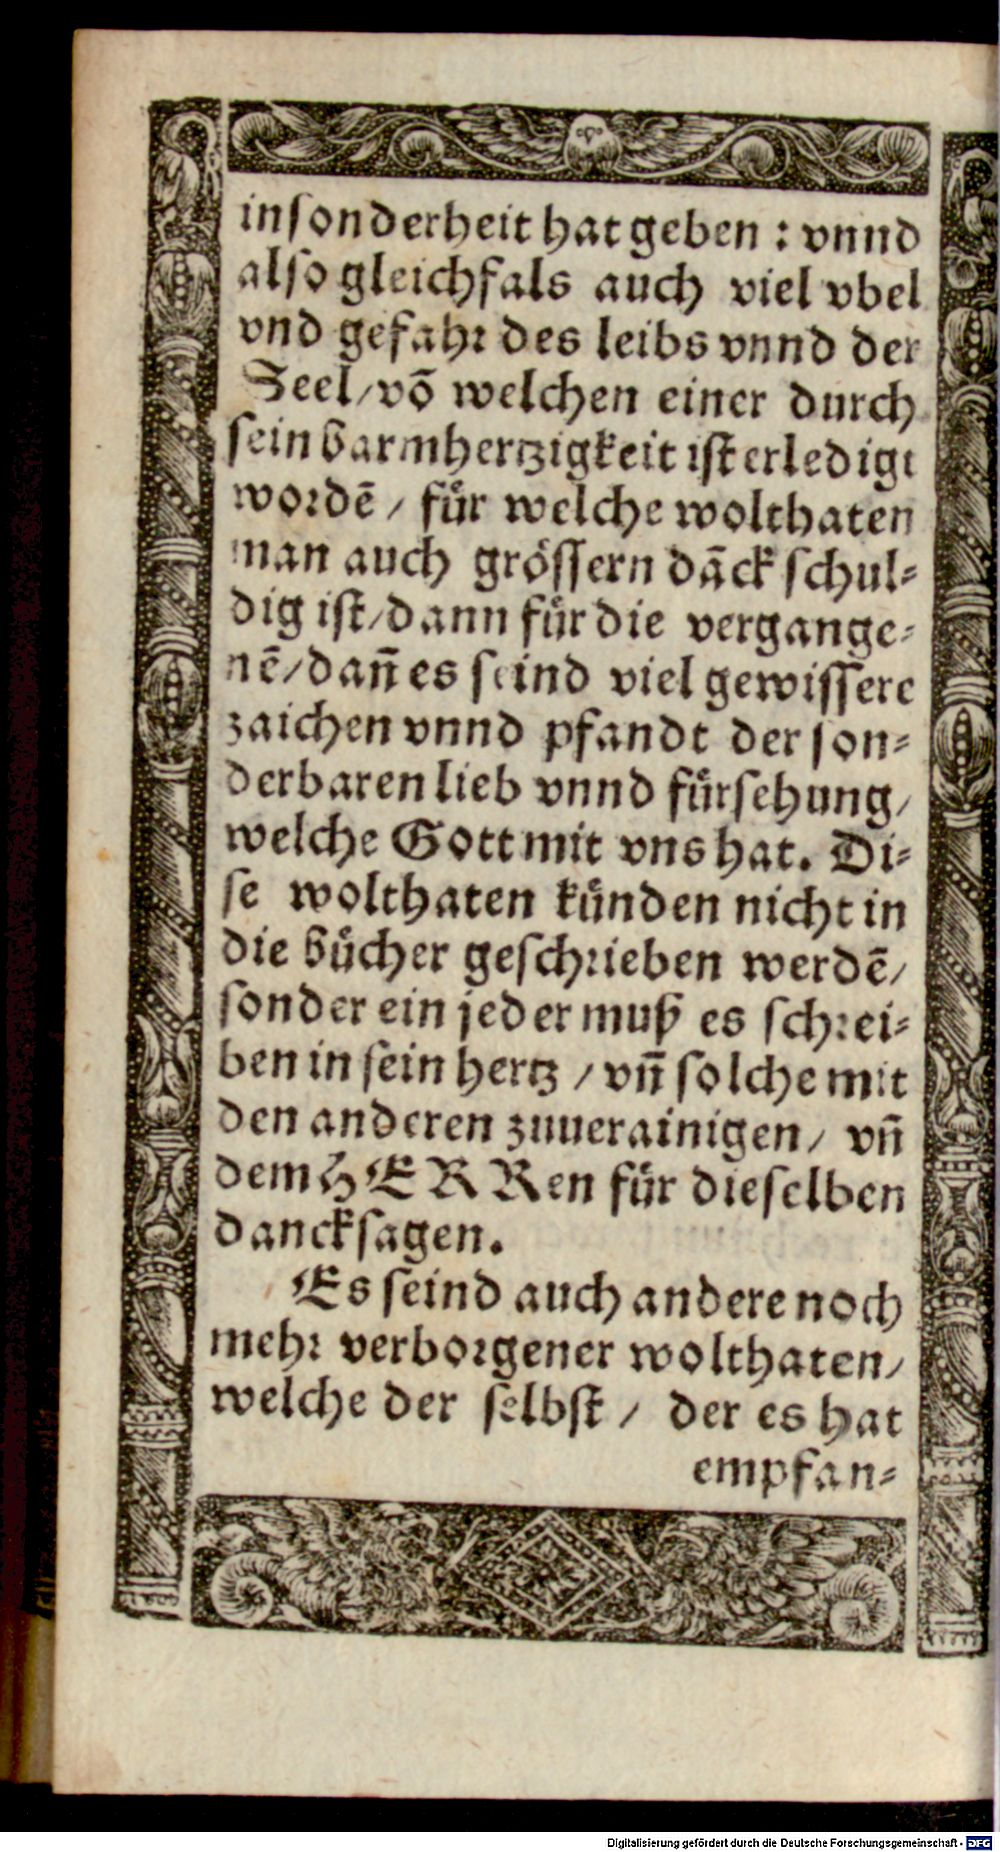 insonderheit hat geben : vnnd
also gleichfals auch viel vbel
vnd gefahr des leibs vnnd der
Seel/ võ welchen einer durch
sein barmhertzigkeit ist erledigt
wordẽ / fuͤr welche wolthaten
man auch groͤssern dãck schul⸗
dig ist/ dann fuͤr die vergange⸗
nẽ/ dañ es seind viel gewissere
zaichen vnnd pfandt der son⸗
derbaren lieb vnnd fuͤrsehung/
welche Gott mit vns hat. Di⸗
se wolthaten kuͤnden nicht in
die buͤcher geschrieben werdẽ/
sonder ein jeder muß es schrei⸗
ben in sein hertz / vñ solche mit
den anderen zuuerainigen/ vñ
dem HERRen fuͤr dieselben
dancksagen.
Es seind auch andere noch
mehr verborgener wolthaten/
welche der selbst / der es hat
empfan⸗
Digitalisierung gefördert durch die Deutsche Forschungsgemeinschaft - DFG